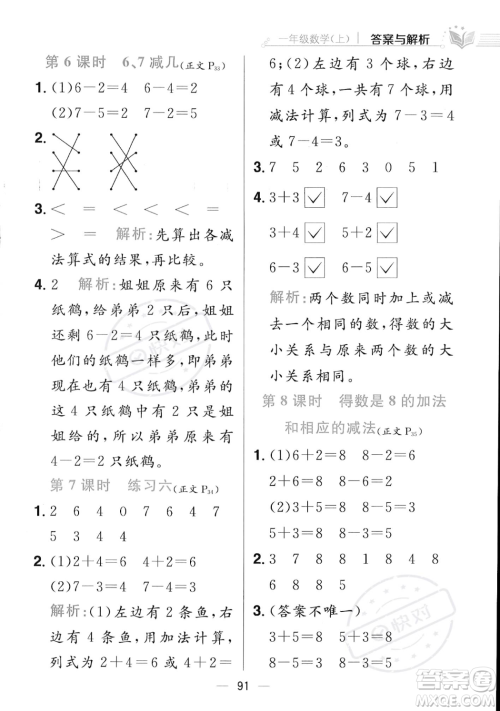 一年级数学(上) 答案与解析
第 6 课时 6、7 减几(正文 P33)
1. (1)6－2＝4 6－4＝2
(2)7－5＝2 7－2＝5
1.
3. ＜ ＝ ＜ ＜ ＜ ＜
＞ ＝ 解析:先算出各减
法算式的结果,再比较。
4. 2 解析:姐姐原来有 6 只
纸鹤,给弟弟 2 只后,姐姐
还剩 6－2＝4 只纸鹤,此时
他们的纸鹤一样多,即弟弟
现在有 4 只纸鹤。弟弟的纸
鹤比原来多 2 只后是 4
只,所以弟弟原来有
4－2＝2 只纸鹤。
第 7 课时 练习六(正文 P34)
1. 2 4 0 7 6 4 7
5 3 4 4
2. (1)2＋4＝6 (2)7－3＝4
解析:(1)左边有 2 条鱼,右
边有 4 条鱼,求一共有几条
鱼,用加法计算,列式为
列式为 2＋4＝
6;(2)左边有 3 个球,右边
有 4 个球,一共有 7 个球,用
减法计算,列式为 7－3＝4
或 7－4＝3。
3. 7 5 2 6 3 0 5 1
4. 3＋3 ✓ 7－4 ✓
3＋4 ✓ 5＋2 ✓
6－3 ✓ 6－5 ✓
解析:两个数同时加上或减
去一个相同的数,得数的大
小关系与原来两个数的大
小关系相同。
第 8 课时 得数是 8 的加法
和相应的减法(正文 P35)
1. (1)6＋2＝8 8－2＝6
(2)3＋5＝8 8－5＝3
2. 3 7 8 1 8 8 4
6 8 8 5
3. (答案不唯一)
3＋5＝8 8－5＝3
4＋4＝8 8－8＝0
91
快对
答案圈
MXQE.COM